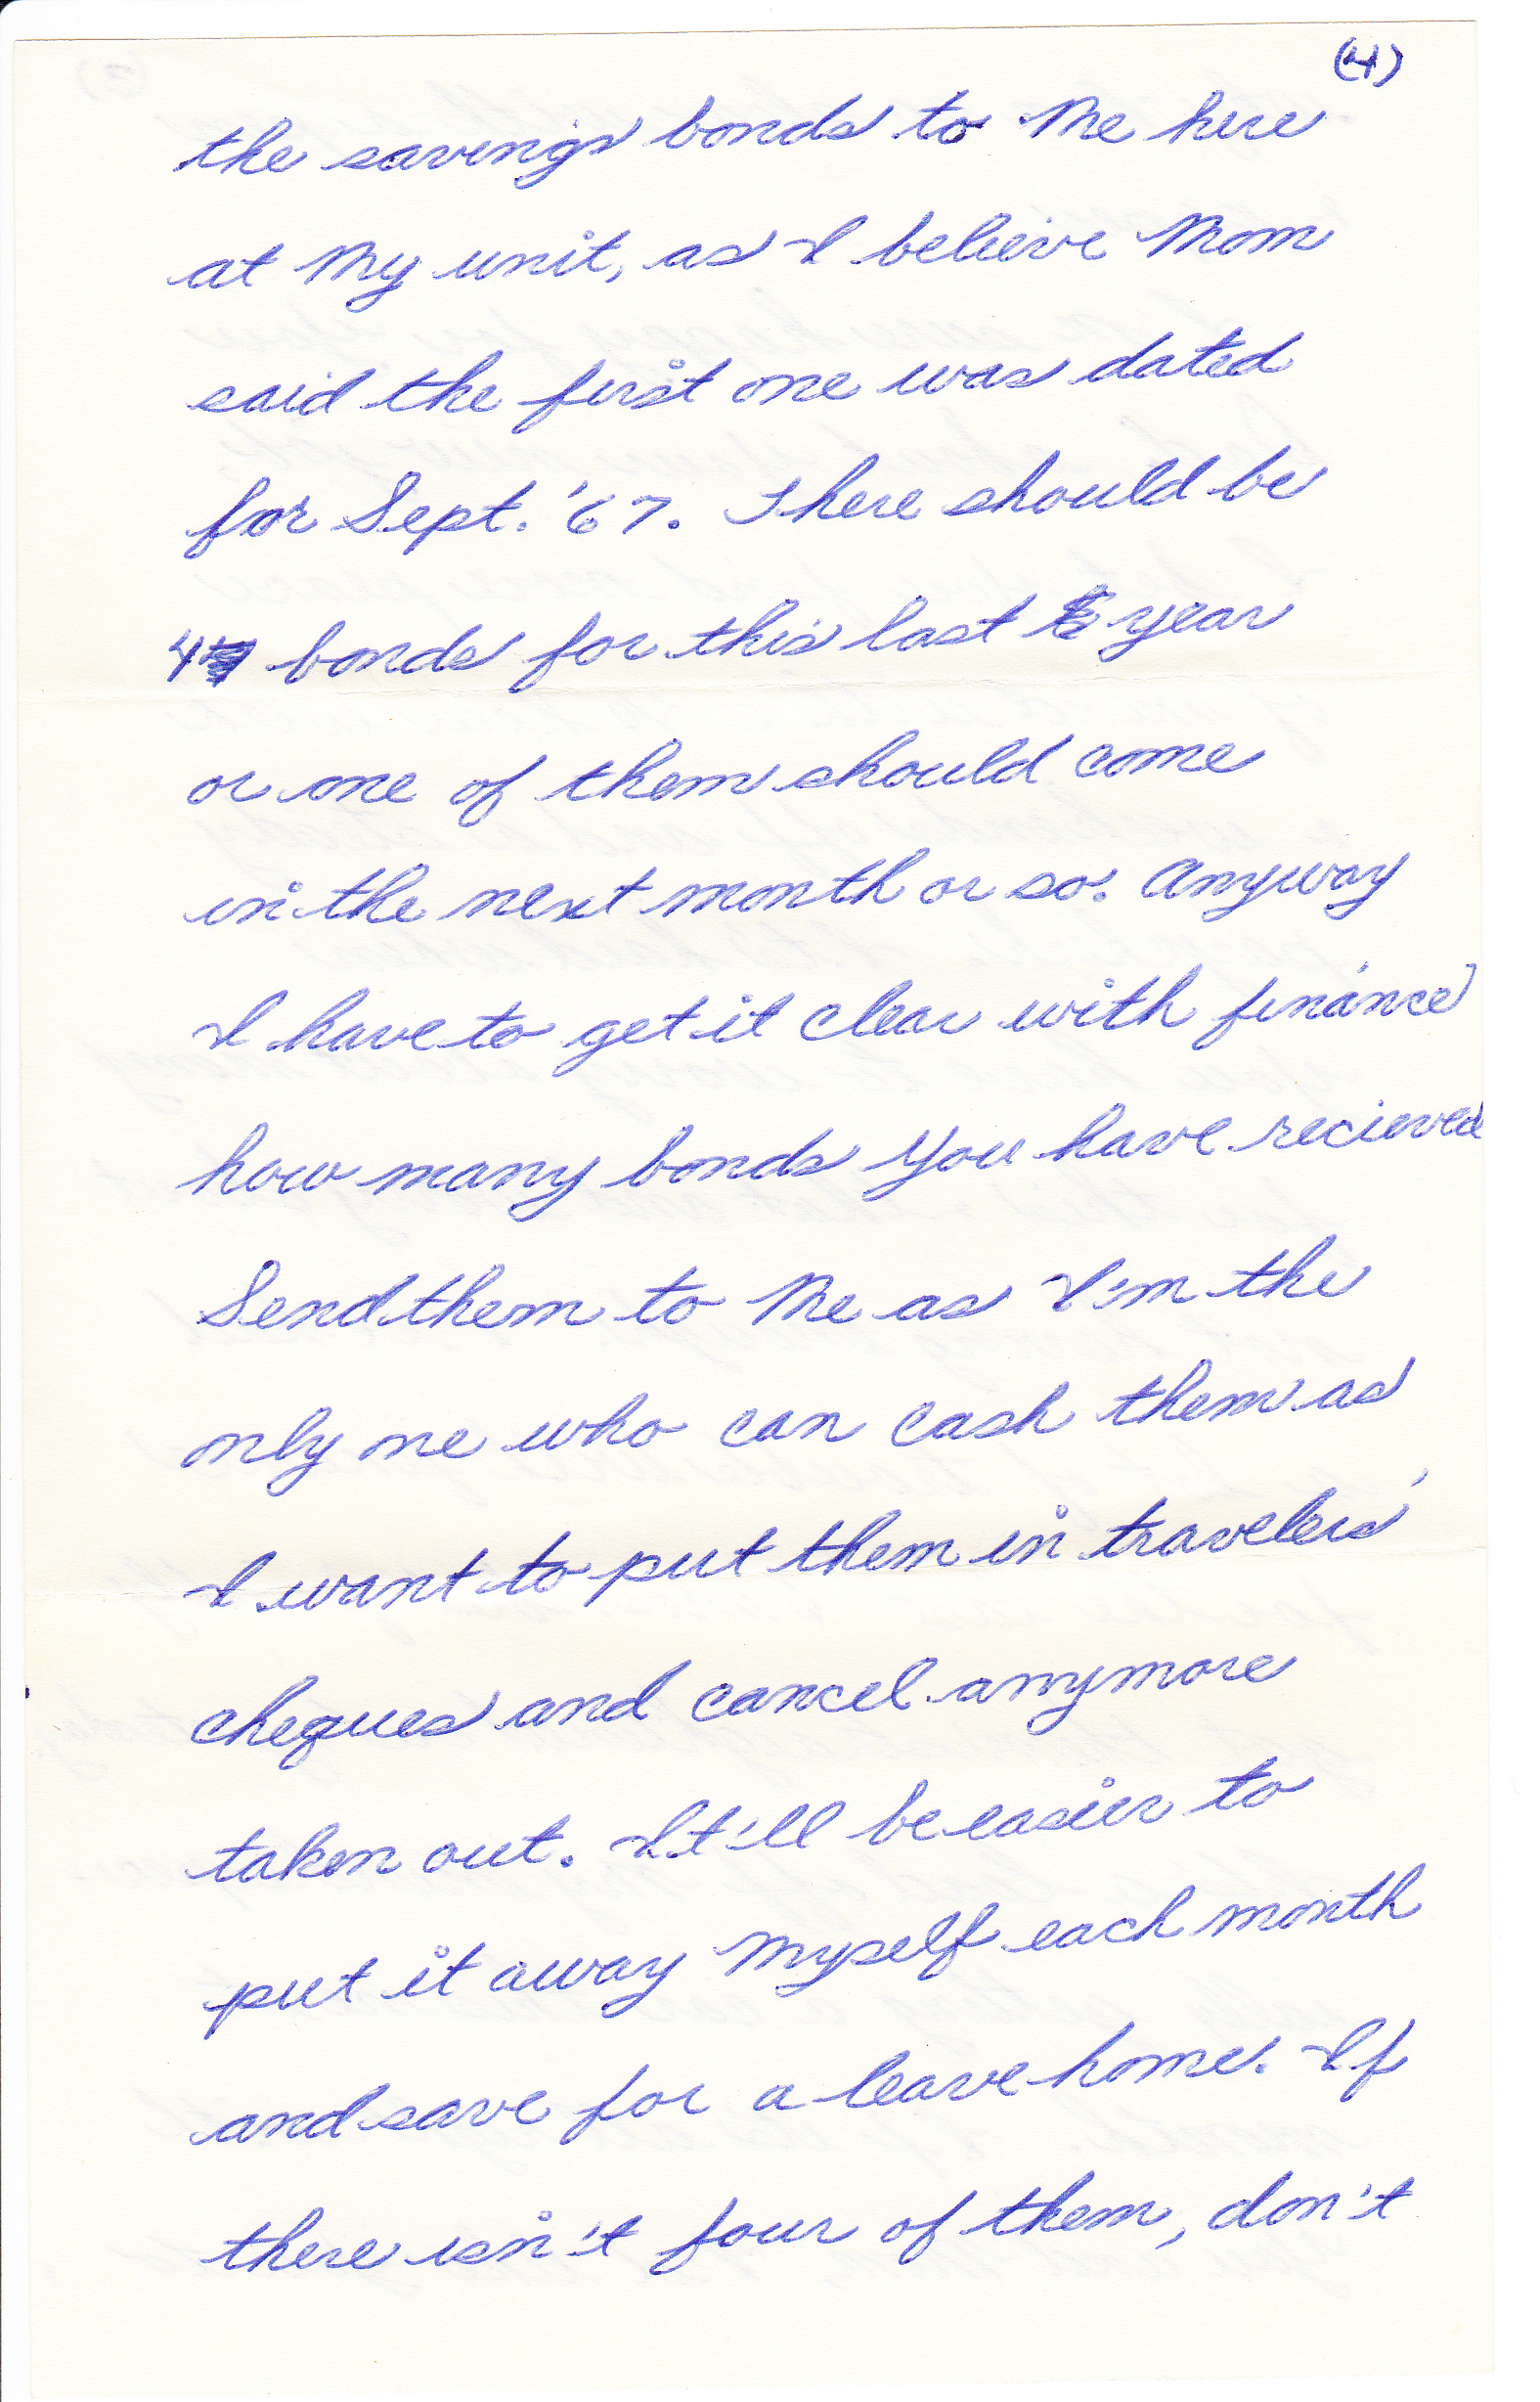 (4)
the savings bonds to Me here
at My unit, as I believe Mom
said the first one was dated
for Sept. '67. There should be
4 bonds for this last year
or one of them should come
in the next month or so. Anyway
I have to get it clear with finance
how many bonds you have recieved
Send them to Me as I'm the
only one who can cash them as
I want to put them in travelers'
cheques and cancel anymore
taken out. It'll be easier to
put it away Myself each month
and save for a leave home. If
there isn't four of them, don't